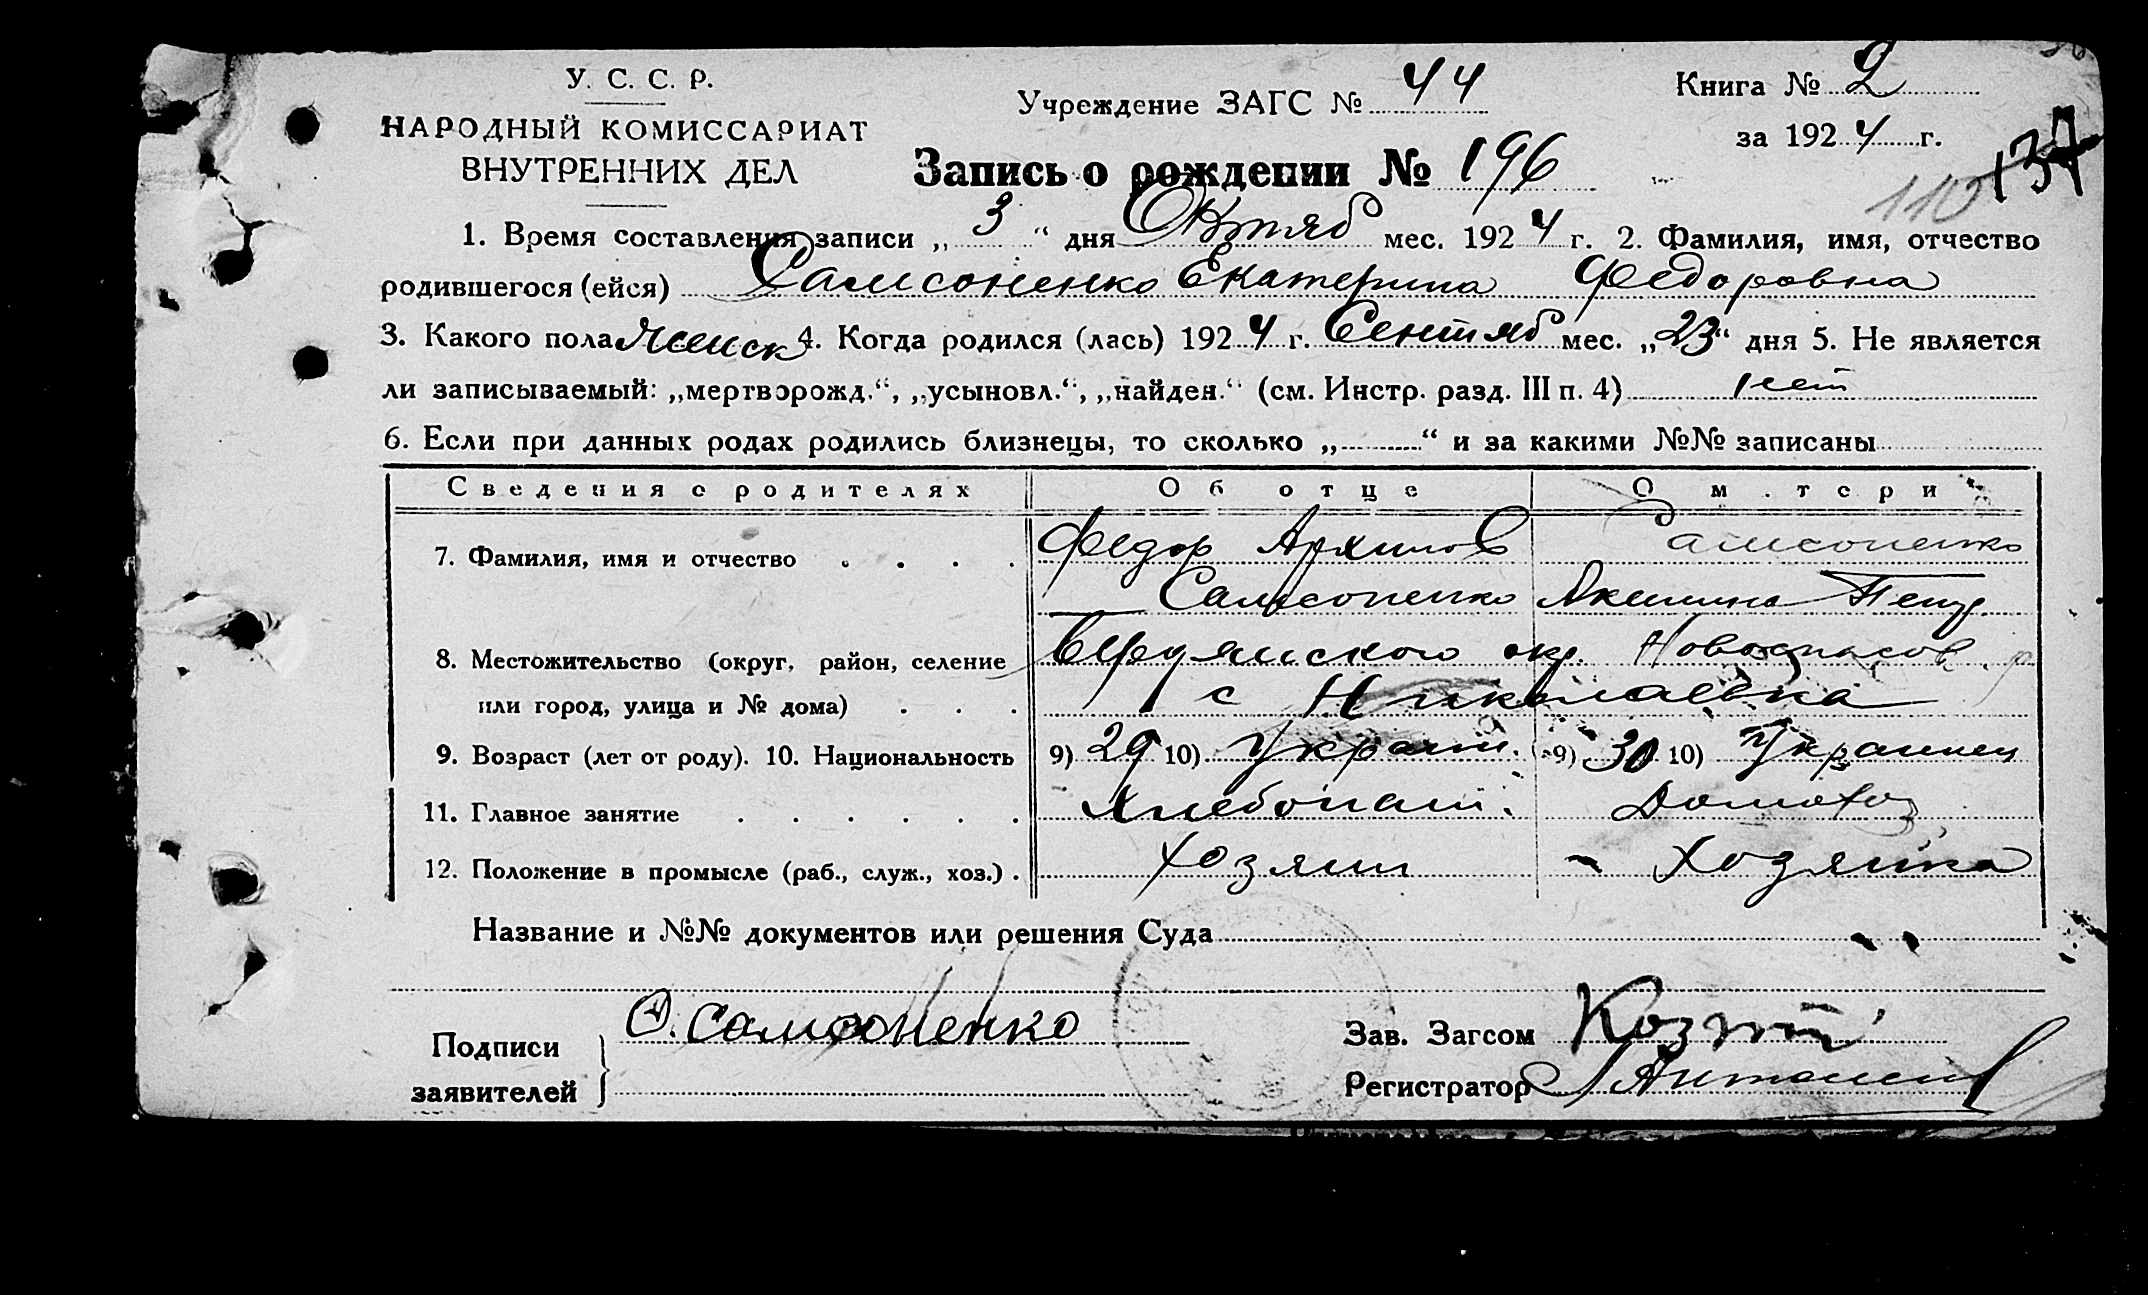 У. С. С. Р.
НАРОДНЫЙ КОМИССАРИАТ
ВНУТРЕННИХ ДЕЛ
Учреждение ЗАГС № 44
Книга № 2
за 1924 г.
Запись о рождении № 196
110 137
1. Время составления записи „ 3 “ дня Октяб мес. 1924 г. 2. Фамилия, имя, отчество
родившегося (ейся) Самсоненко Екатерина Федоровна
3. Какого пола женск 4. Когда родился (лась) 1924 г. Сентяб мес. „23“ дня 5. Не является
ли записываемый: „мертворожд.“, „усыновл.“, „найден.“ (см. Инстр. разд. III п. 4) нет
6. Если при данных родах родились близнецы, то сколько „..........“ и за какими №№ записаны
Сведения о родителях Об отце О матери
7. Фамилия, имя и отчество . . . . Федор Архипов Самсоненко
Самсоненко Акилина Петр.
8. Местожительство (округ, район, селение Бердянского окр. Новоспасов. р
или город, улица и № дома) . . . с Николаевка
9. Возраст (лет от роду). 10. Национальность 9) 29 10) Украин. 9) 30 10) Украинец
11. Главное занятие . . . . . . Хлебопаш. Домохоз
12. Положение в промысле (раб., служ., хоз.) . хозяин хозяйка
Название и №№ документов или решения Суда
Подписи
заявителей
Ф. Самсоненко
Зав. Загсом
Регистратор